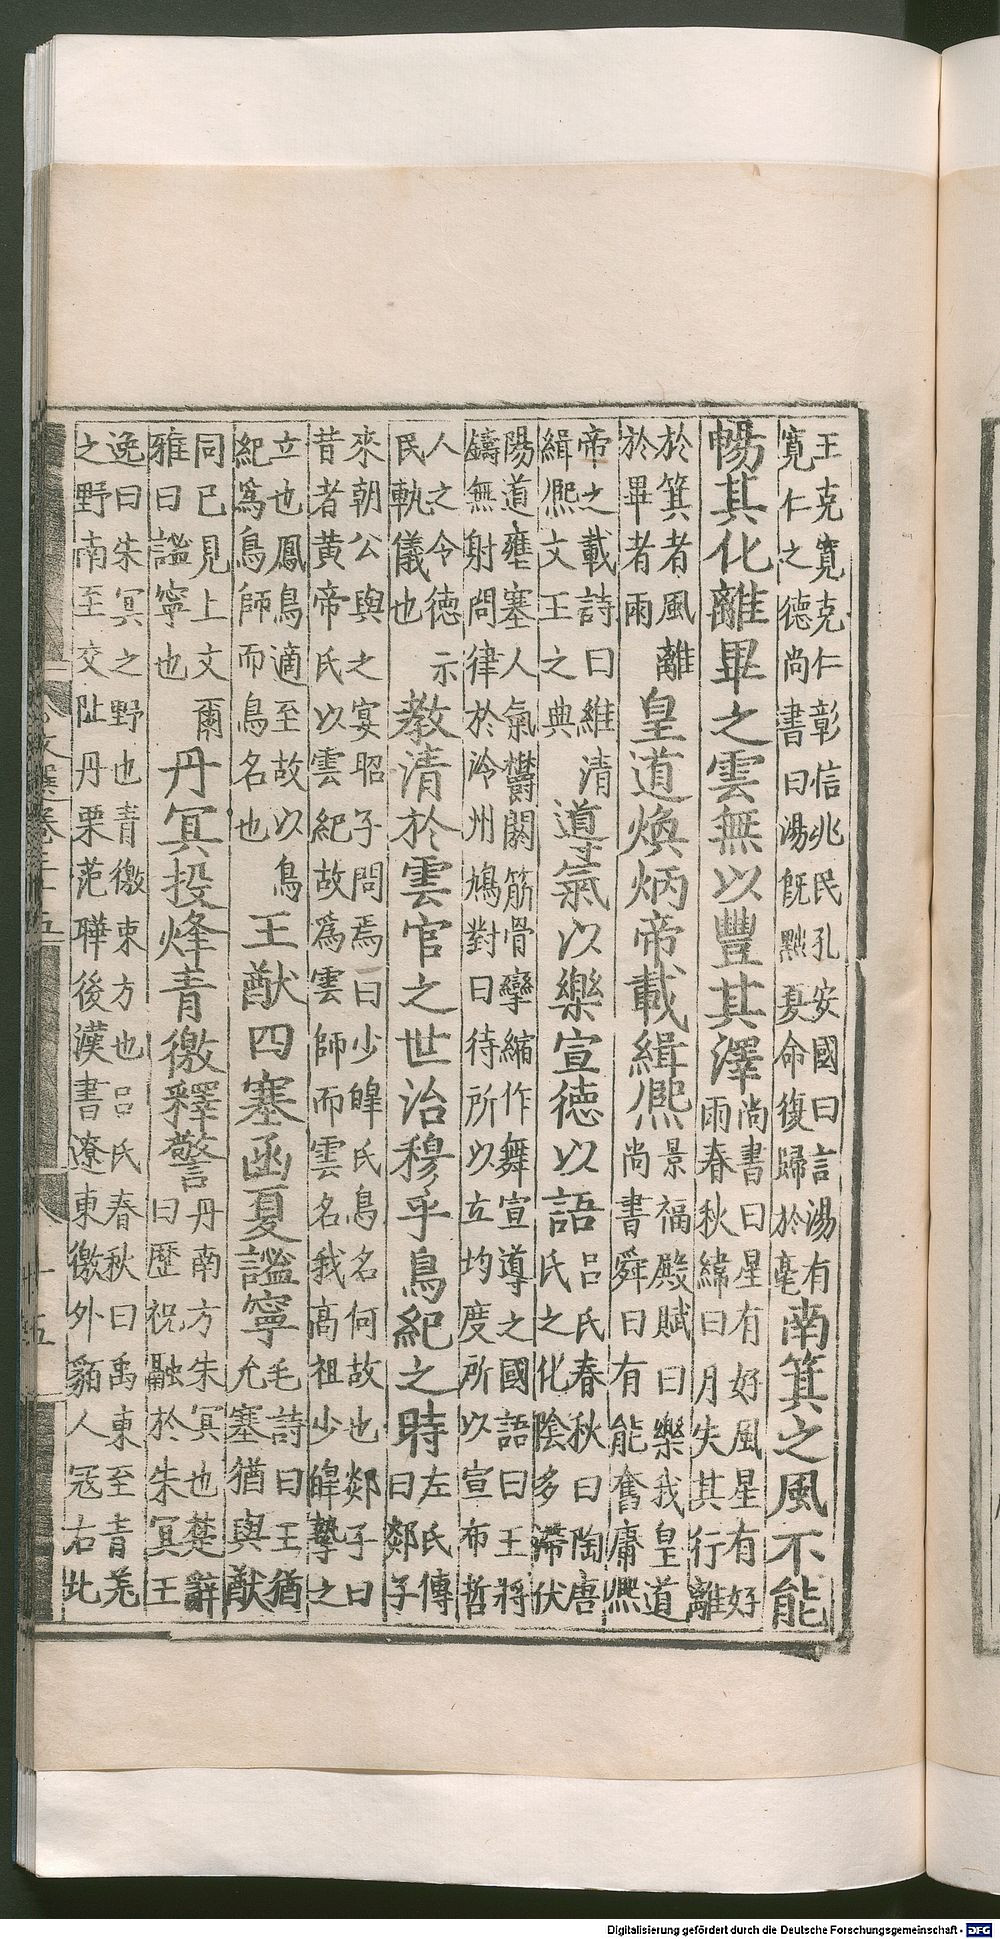 王克寬克仁彰信兆民孔安國曰言湯有
寬仁之德尚書曰湯旣黜夏命復歸於亳
南箕之風不能
暢其化離畢之雲無以豐其澤
尚書曰星有好風星有好
雨春秋緯曰月失其行離
於箕者風離
於畢者雨
皇道煥炳帝載緝熙
景福殿賦曰樂我皇道
尚書舜曰有能奮庸熙
帝之載詩曰維清
緝熙文王之典
導氣以樂宣德以語
呂氏春秋曰陶唐
氏之化陰多滯伏
陽道壅塞人氣鬱閼筋骨攣縮作舞宣導之國語曰王將
鑄無射問律於泠州鳩對曰待所以立均度所以宣布哲
人之令德示
民軌儀也
教清於雲官之世治穆乎鳥紀之時
左氏傳
曰郯子
來朝公與之宴昭子問焉曰少皥氏鳥名何故也郯子曰
昔者黄帝氏以雲紀故爲雲師而雲名我高祖少皥摯之
立也鳳鳥適至故以鳥
紀爲鳥師而鳥名也
王猷四塞函夏謐寧
毛詩曰王猶
允塞猶與猷
同已見上文爾
雅曰謐寧也
丹冥投烽青徼釋警
丹南方朱冥也楚辭
曰歷祝融於朱冥王
逸曰朱冥之野也青徼東方也呂氏春秋曰禹東至青羗
之野南至交阯丹栗范曄後漢書遼東徼外貊人宼右北
文選卷三十五
十五
Digitalisierung gefördert durch die Deutsche Forschungsgemeinschaft - DFG